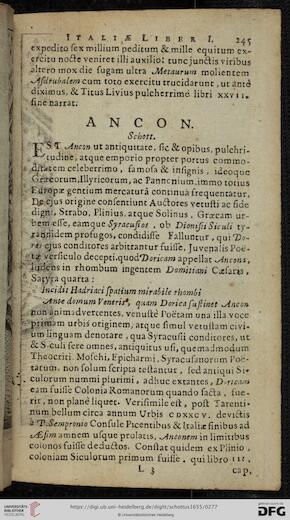 ITALIÆ LIBER I. 245
expedito sex millium peditum & mille equitum ex-
ercitu nocte veniret illi auxilio: tunc junctis viribus
altero mox die fugam ultra Metaurum molientem
Asdrubalem cum toto exercitu trucidarunt, ut antè
diximus, & Titus Livius pulcherrimè libri XXVII.
fine narrat.
ANCON.
Schott.
EST Ancon ut antiquitate, sic & opibus, pulchri-
tudine, atque emporio propter portus commo-
ditatem celeberrimo, famosa & insignis, ideoque
Græcorum, Illyricorum, ac Pannonium, immo totius
Europæ gentium mercaturâ continua frequentatur.
De ejus origine consentiunt Auctores vetusti ac side
digni, Strabo, Plinius, atque Solinus, Græcam ur-
bem esse, eamque Syracusios, ob Dionysii Siculi ty-
rannidem profugos, condidisse. Falluntur, qui Do-
res ejus conditores arbitrantur fuisse, Juvenalis Poë-
tæ versiculo decepti, quod Doricam appellat Ancona,
ludens in rhombum ingentem Domitiani Cæsaris,
Satyra quarta:
Incidit Hadriaci spatium mirabile rhombi
Ante domum Veneris, quam Dorica sustinet Ancon
non animadvertentes, venustè Poëtam una illa voce
primam urbis originem, atque simul vetustam civi-
um linguam denotare, qua Syracusii conditores, ut
& Siculi fere omnes, antiquitus usi, quemadmodum
Theocriti, Moschi, Epicharmi, Syracusanorum Poë-
tarum, non solum scripta testantur, sed antiqui Si-
culorum nummi plurimi, adhuc extantes, Doricam
eam fuisse Colonia Romanorum quando facta, fue-
rit, non planè liquet. Verisimile est, post Tarenti-
num bellum circa annum Urbis CDXXCV. devictis
à P. Sempronio Consule Picentibus & Italiæ finibus ad
Æsim amnem usque prolatis, Anconem in limitibus
colonos fuisse deductos. Constat quidem ex Plinio,
coloniam Siculorum primum fuisse, qui libro III.
L 3 cap.
https://digi.ub.uni-heidelberg.de/diglit/schottus1655/0277
© Universitätsbibliothek Heidelberg